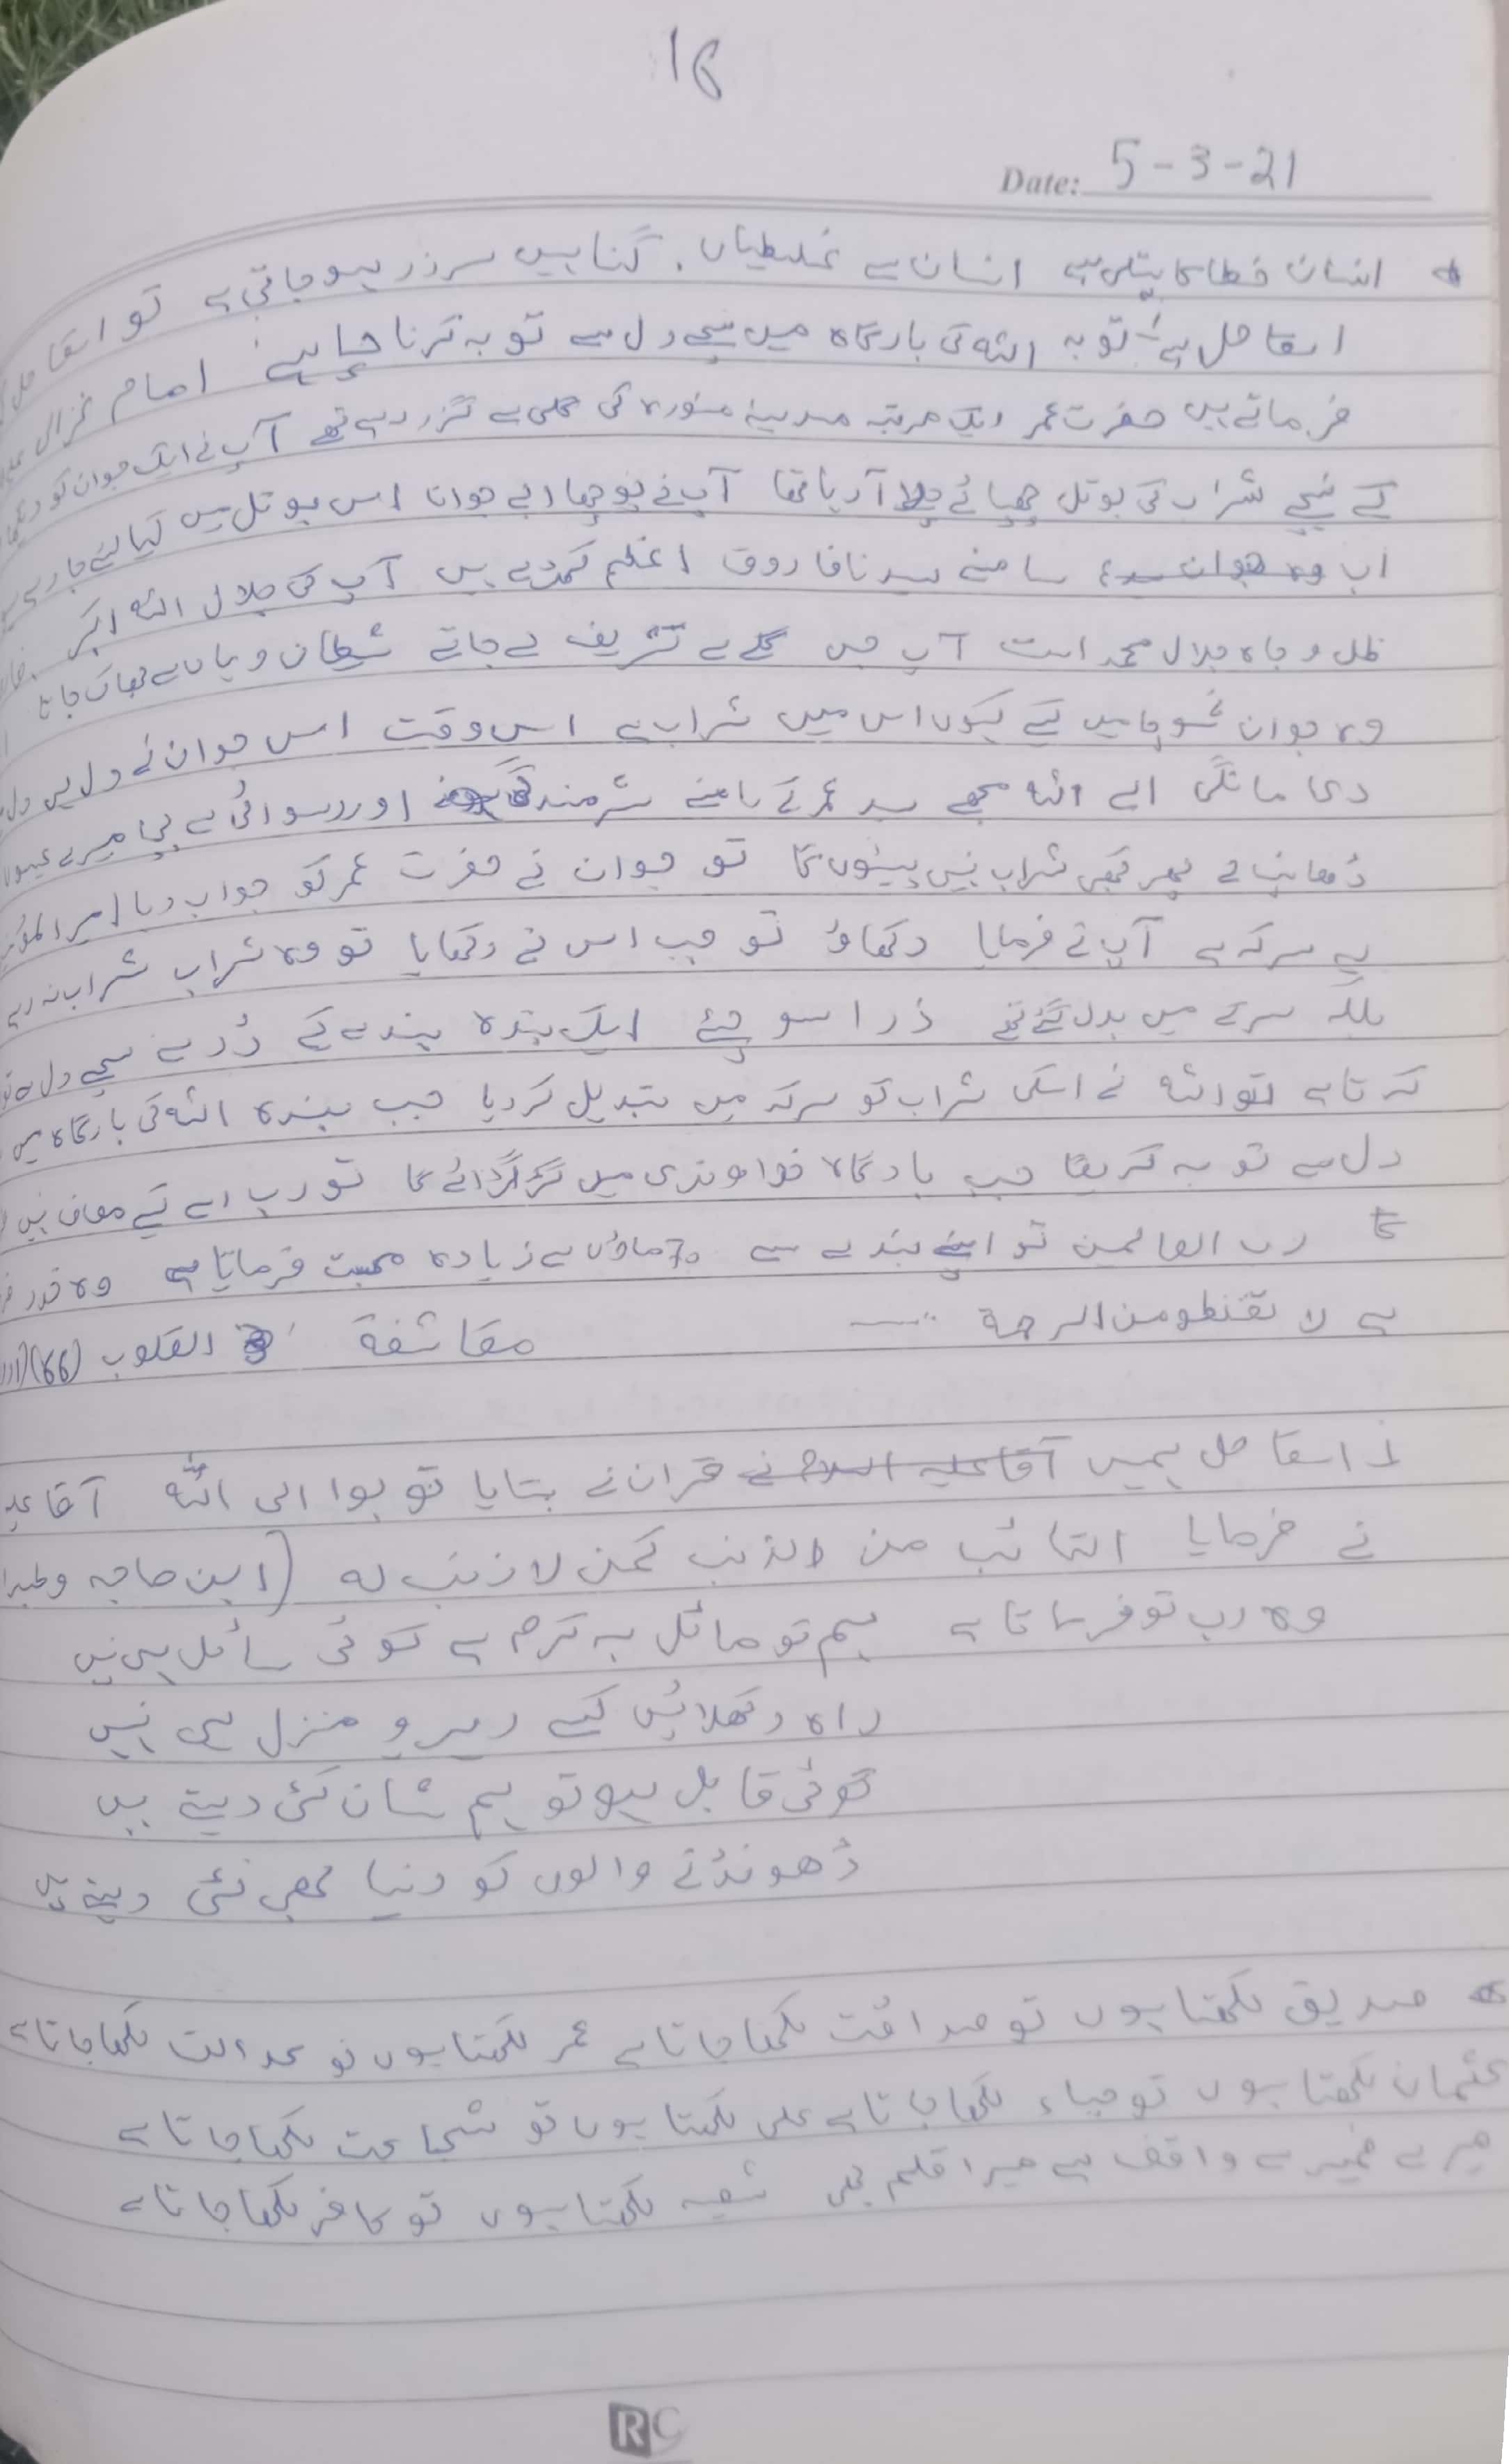 16
Date: 5-3-21
انسان خطا کا پتلی ہے انسان سے غلطیاں، گناہیں سرزد ہو جاتی ہے تو اسکا حل
اسکا حل ہے توبہ اللہ کی بارگاہ میں سچے دل سے توبہ کرنا چاہیے امام غزالی
فرماتے ہیں حضرت عمر ایک مرتبہ مدینہ منورہ کی گلی سے گزر رہے تھے آپ نے ایک جوان کو دیکھا
کے نیچے شراب کی بوتل چھپائے چلا آ رہا تھا آپ نے پوچھا اے جوان اس بوتل میں کیا لئے جا رہے
اب وہ جوان سامنے سیدنا فاروق اعظم کھڑے ہیں آپ کی جلال اللہ اکبر
ظل و جاہ جلال محمد است آپ جس گلی سے تشریف لے جاتے شیطان وہاں سے بھاگ جاتا
وہ جوان سوچا میں کیسے کہوں اس میں شراب ہے اس وقت اس جوان نے دل ہی دل
دعا مانگی اے اللہ مجھے سید عمر کے سامنے شرمندگی اور رسوائی سے بچا میرے عیبوں
ڈھانپ لے پھر کبھی شراب نہیں پیئوں گا تو جوان نے حضرت عمر کو جواب دیا امیر المؤمنین
یہ سرکہ ہے آپ نے فرمایا دکھاؤ تو جب اس نے دکھایا تو وہ شراب شراب نہ رہی
بلکہ سرکے میں بدل گئے تھے ذرا سوچئے ایک بندہ بندے کے ڈر سے سچے دل سے
کرتا ہے تو اللہ نے اسکی شراب کو سرکہ میں تبدیل کر دیا جب بندہ اللہ کی بارگاہ میں
دل سے توبہ کریگا جب بارگاہ خداوندی میں گڑگڑائے گا تو رب اسے کیسے معاف نہیں
گا رب العالمین تو اپنے بندے سے 70 ماؤں سے زیادہ محبت فرماتا ہے وہ خود
ہے لا تقنطو من الرحمة مقاشفة القلوب (66)
اسکا حل ہمیں آقا علیہ السلام نے قران نے بتایا توبوا الی اللہ آقا
نے فرمایا التائب من الذنب کمن لا ذنب لہ (ابن ماجہ
وہ رب تو فرماتا ہے ہم تو مائل بہ کرم ہے کوئی سائل ہی نہیں
راہ دکھلائیں کسے رہرو منزل ہی نہیں
کوئی قابل ہو تو ہم شان کئی دیتے ہیں
ڈھونڈنے والوں کو دنیا بھی نئی دیتے ہیں
صدیق لکھتا ہوں تو صداقت لکھا جاتا ہے عمر لکھتا ہوں تو عدالت لکھا جاتا ہے
عثمان لکھتا ہوں تو حیاء لکھا جاتا ہے علی لکھتا ہوں تو شجاعت لکھا جاتا ہے
میرے ضمیر سے واقف ہے میرا قلم بھی شعیہ لکھتا ہوں تو کافر لکھا جاتا ہے
RC